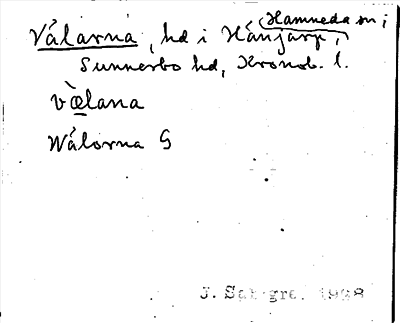 Vålarna, hd i Hånjarp, Hamneda sn;
Sunnerbo hd, Kronob. l.
vœ̀lana
Wålorna G
J. 1928